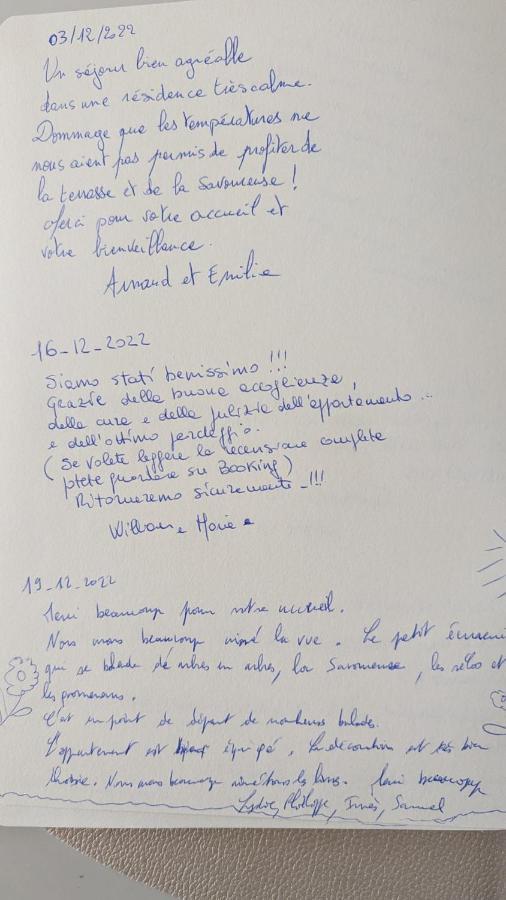 03/12/2022
Un séjour bien agréable
dans une résidence très calme.
Dommage que les températures ne
nous aient pas permis de profiter de
la terrasse et de la Savoureuse !
Merci pour votre accueil et
votre bienveillance.
Arnaud et Emilie
16-12-2022
Siamo stati benissimo !!!
Grazie della buona accoglienza,
della cura e della pulizia dell'appartamento...
e dell'ottimo parcheggio.
(Se volete leggere la recensione completa
potete guardare su Booking)
Ritorneremo sicuramente !!!
Maria
19-12-2022
Merci beaucoup pour votre accueil.
Nous avons beaucoup aimé la vue. Le petit écureuil
qui se balade d'arbres en arbres, la Savoureuse, les vélos et
les promeneurs.
C'est un point de départ de nombreuses balades.
L'appartement est équipé. La décoration est très bien
choisie. Nous avons beaucoup aimé tous les livres. Merci beaucoup
Lydie, Philippe, Inès, Samuel